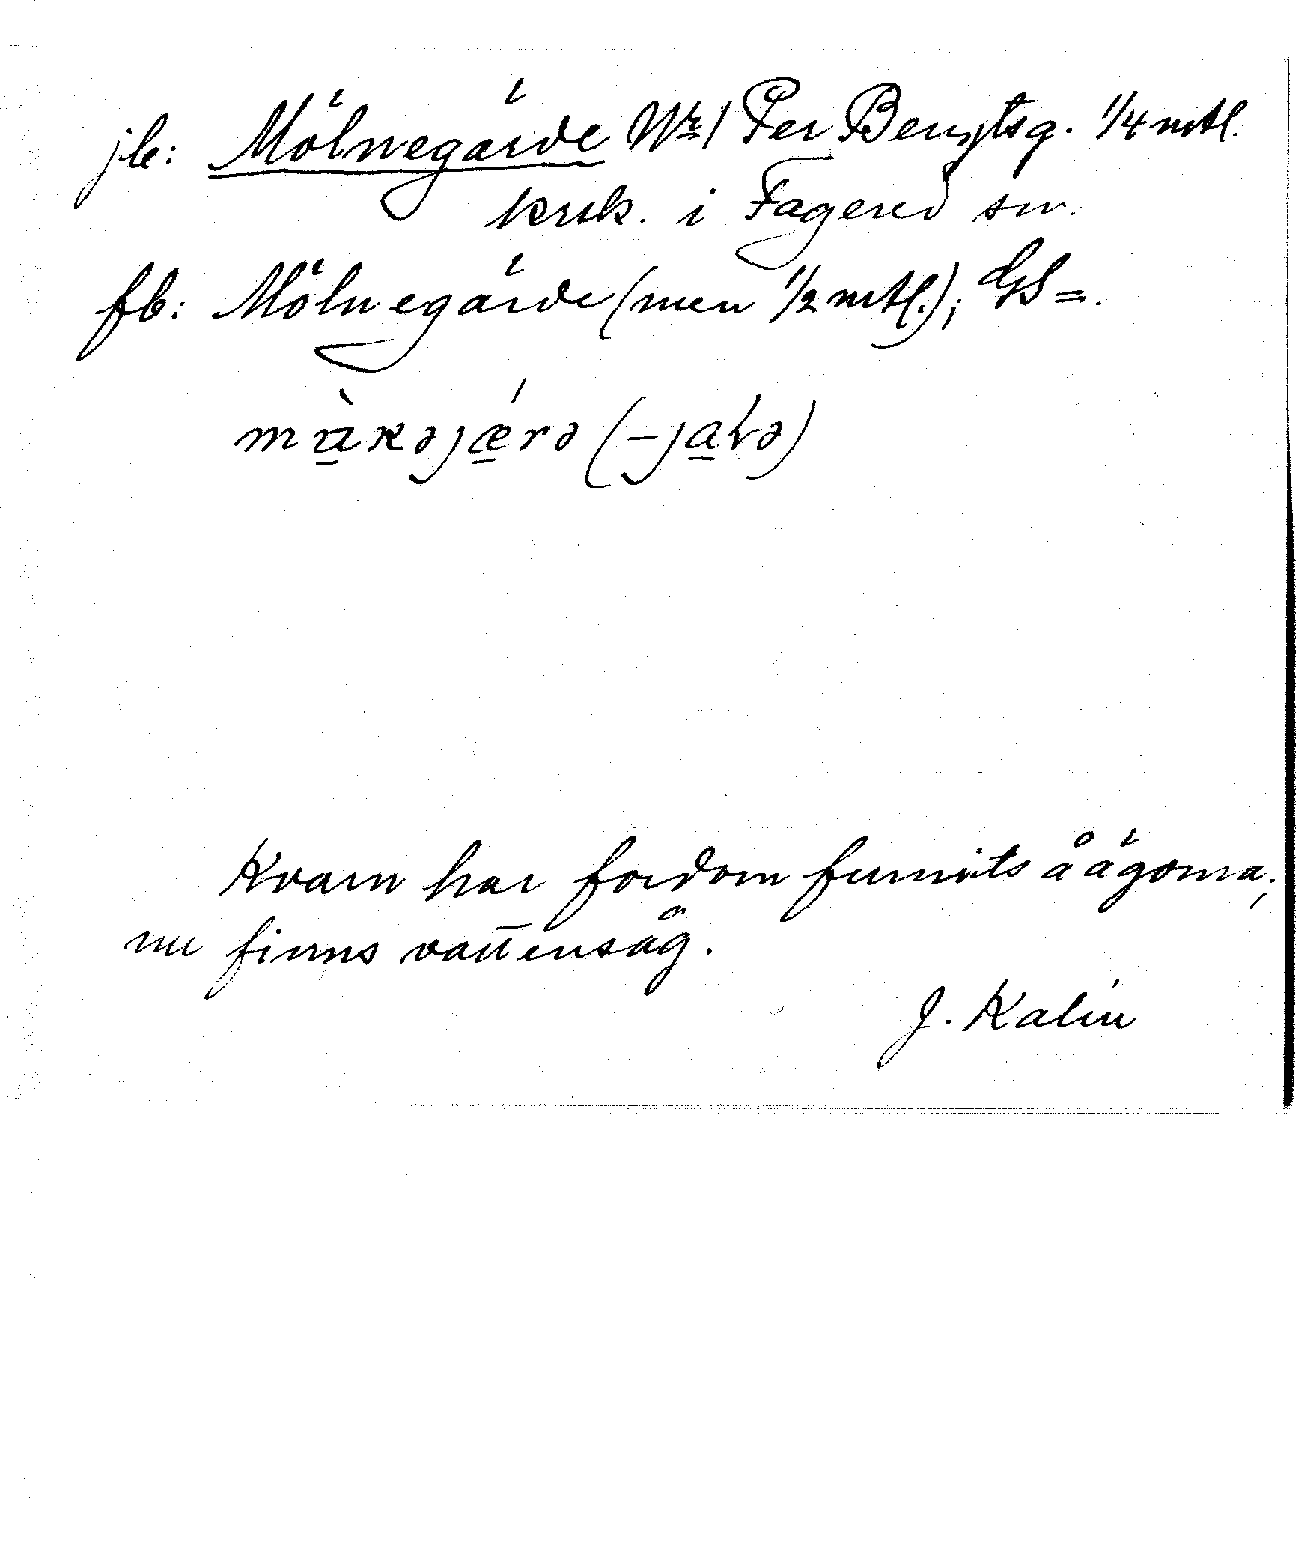 jb: Mölnegärde No 1 Per Bengtsg. 1/4 mtl.
krsk. i Fagered sn.
fb: Mölnegärde (men 1/2 mtl.); GS =.
Kvarn har fordom funnits å ägorna;
nu finns vattensåg.
J. Kalén